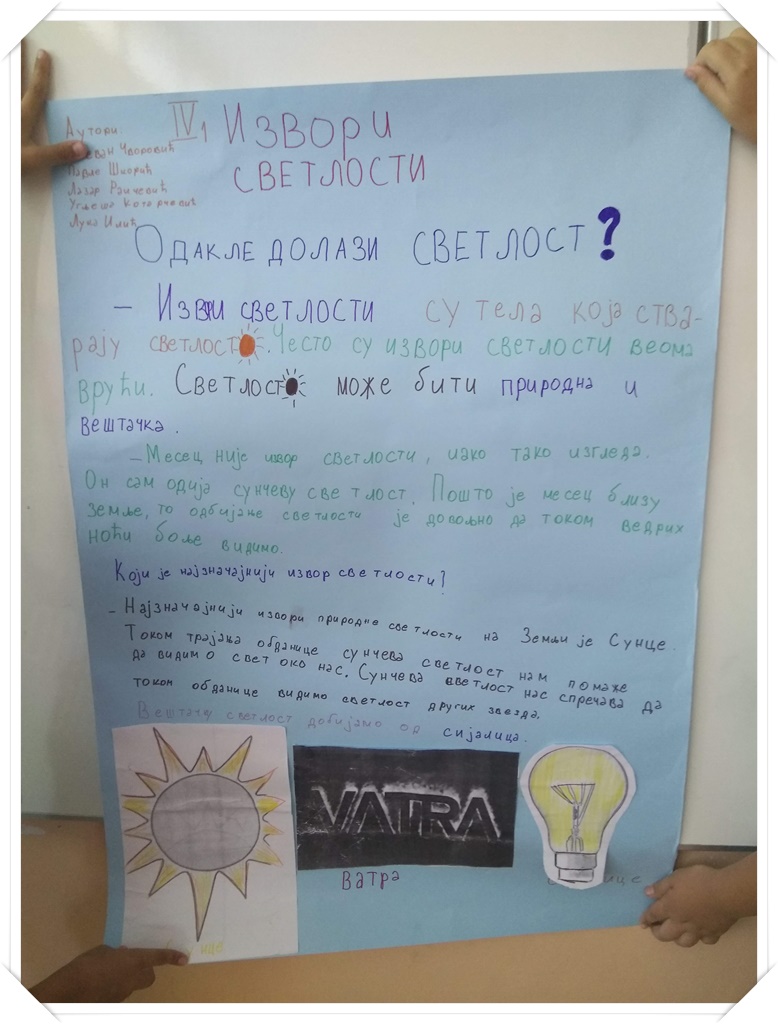 Аутори:
Чворовић
Павле
Лазар Раичевић
Угљеша
Лука Илић
IV1 Извори
светлости
Одакле долази светлост?
- Изври светлости су тела која ства-
рају светлост. Често су извори светлости веома
врући. Светлост може бити природна и
вештачка.
- Месец није извор светлости, иако тако изгледа.
Он сам одија сунчеву светлост. Пошто је месец близу
Земље, то одбијање светлости је довољно да током ведрих
ноћи боље видимо.
Који је најзначајнији извор светлости?
- Најзначајнији извори природне светлости на Земљи је Сунце.
Током трајања обданице сунчева светлост нам помаже
да видимо свет око нас. Сунчева светлост нас спречава да
током обданице видимо светлост других звезда.
Вештачку светлост добијамо од сијалица.
VATRA
Ватра